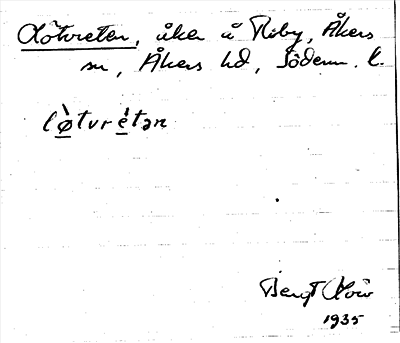 Lötvreten, åker å Riby, Åkers
sn, Åkers hd, Söderm. l.
lø̀tvrétən
Bengt
1935